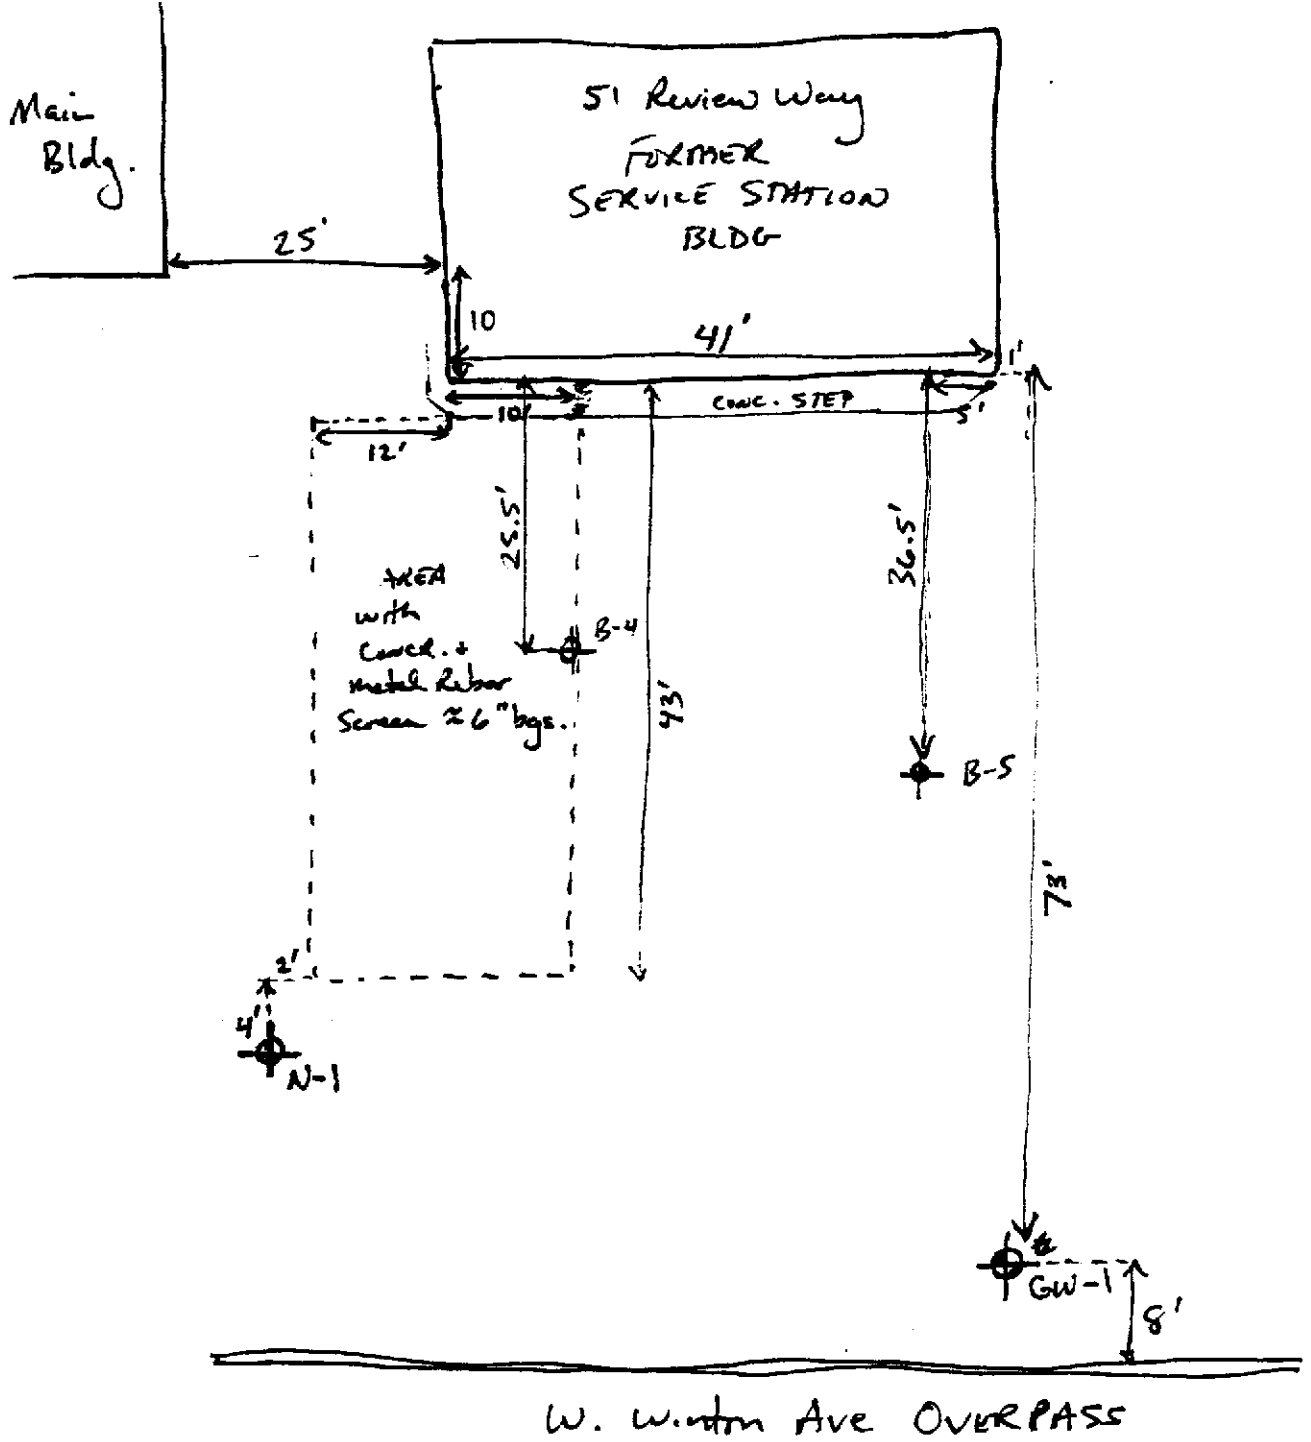 Main
Bldg.
51 Review Way
FORMER
SERVICE STATION
BLDG
25'
10
41'
1'
10'
CONC. STEP
5'
12'
25.5'
36.5'
AREA
with
Concr. +
metal Rebar
Screen ≈ 6" bgs.
B-4
43'
B-5
73'
2'
4'
N-1
GW-1
8'
W. Winton Ave OVERPASS